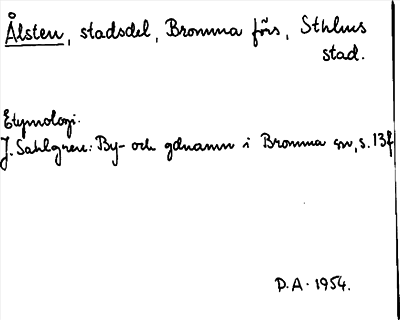 Ålsten, stadsdel, Bromma förs, Sthlms
stad.
Etymologi.
J. Sahlgren: By- och gdnamn i Bromma sn, s. 13f
D.A. 1954.